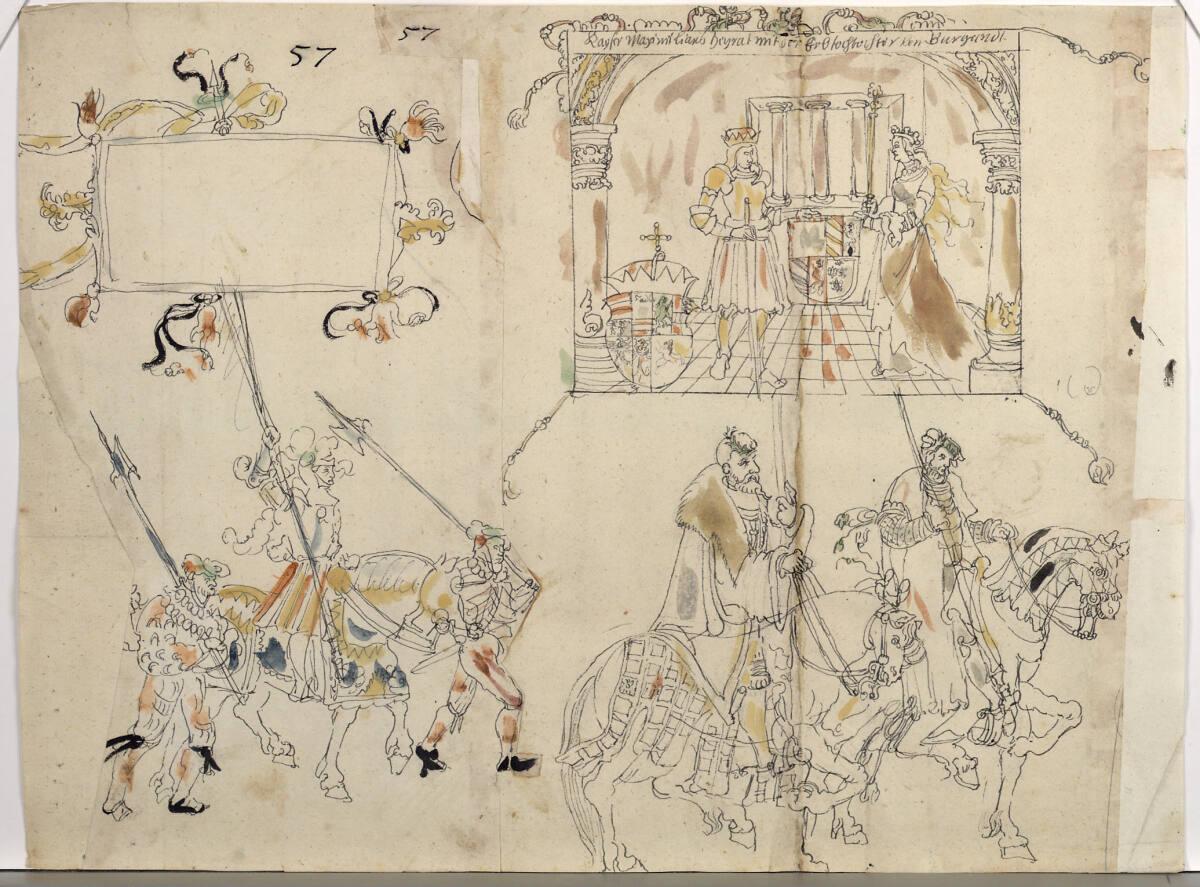 57
57
Kayser Maximilians Heyrat mit der Erbtochter von Burgundi.